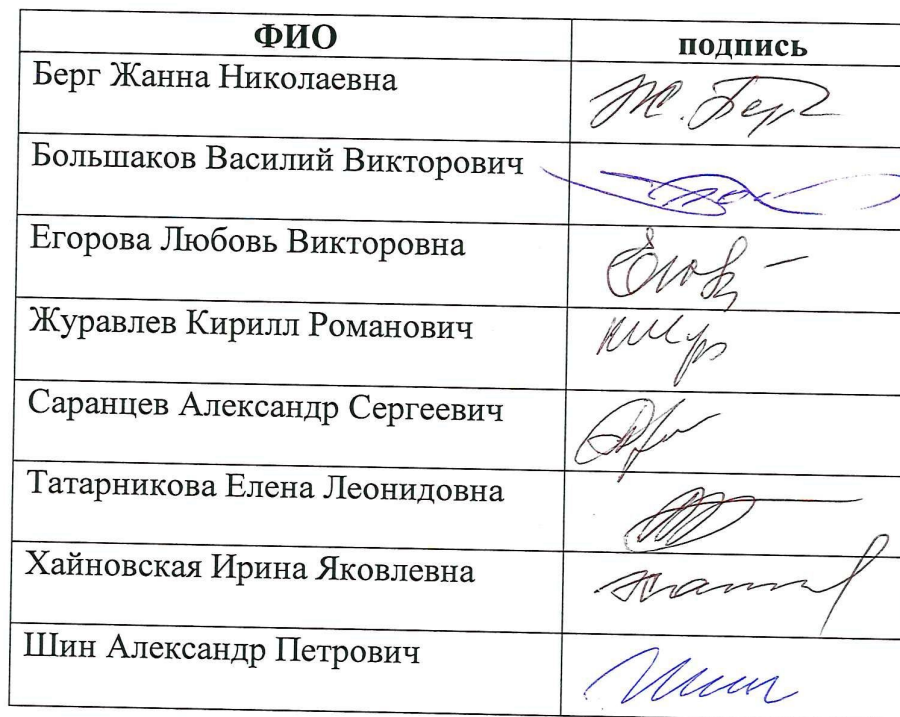 ФИО подпись
Берг Жанна Николаевна Ж. Берг
Большаков Василий Викторович
Егорова Любовь Викторовна
Журавлев Кирилл Романович
Саранцев Александр Сергеевич
Татарникова Елена Леонидовна
Хайновская Ирина Яковлевна
Шин Александр Петрович Шин